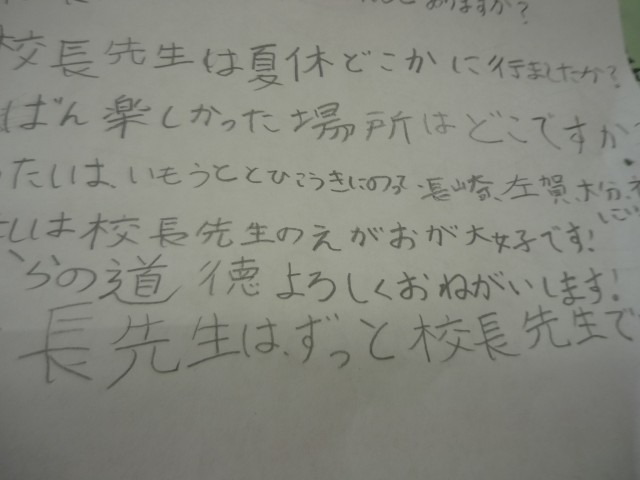 ありますか?
校長先生は夏休どこかに行ましたか?
ばん楽しかった場所はどこですか
たいは、いもうととひこうきにのって長崎、左賀、大分、
いは校長先生のえがおが大好です!
らの道徳よろしくおねがいします!
長先生は、ずっと校長先生で